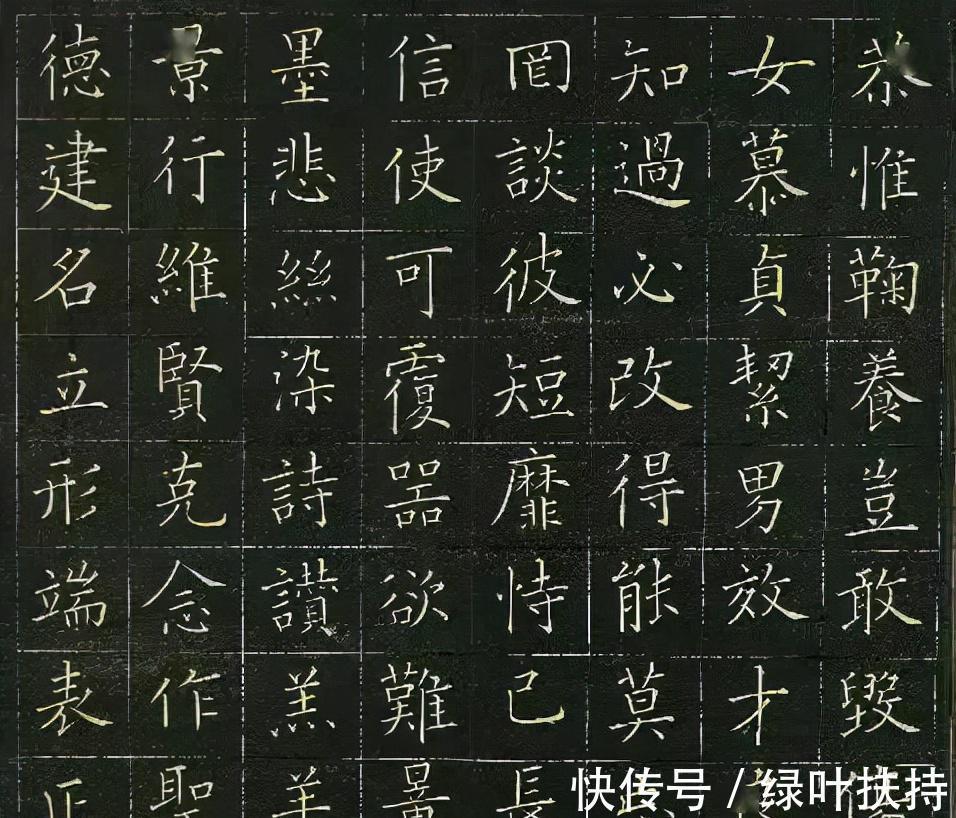 恭惟鞠養豈敢毀
女慕貞絜男效才
知過必改得能莫
罔談彼短靡恃己長
信使可覆噐欲難量
墨悲絲染詩讚羔羊
景行維賢克念作聖
德建名立形端表正
快传号/绿叶扶持